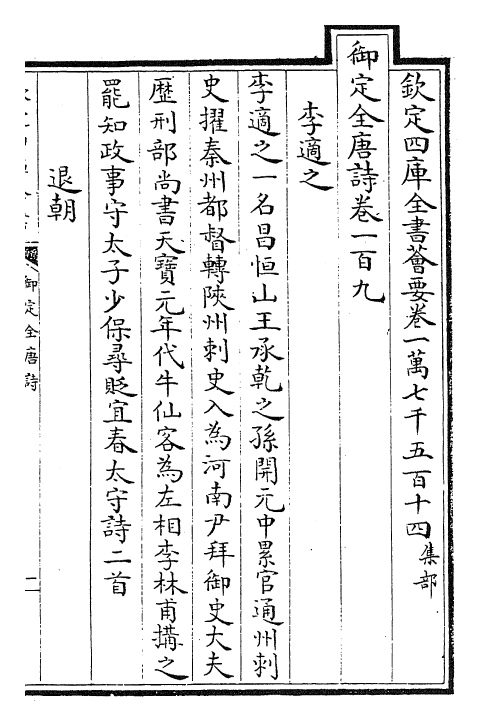 欽定四庫全書薈要卷一萬七千五百十四集部
御定全唐詩卷一百九
李適之
李適之一名昌恒山王承乾之孫開元中累官通州刺
史擢秦州都督轉陝州刺史入為河南尹拜御史大夫
歷刑部尚書天寳元年代牛仙客為左相李林甫搆之
罷知政事守太子少保尋貶宜春太守詩二首
退朝
御定全唐詩
二